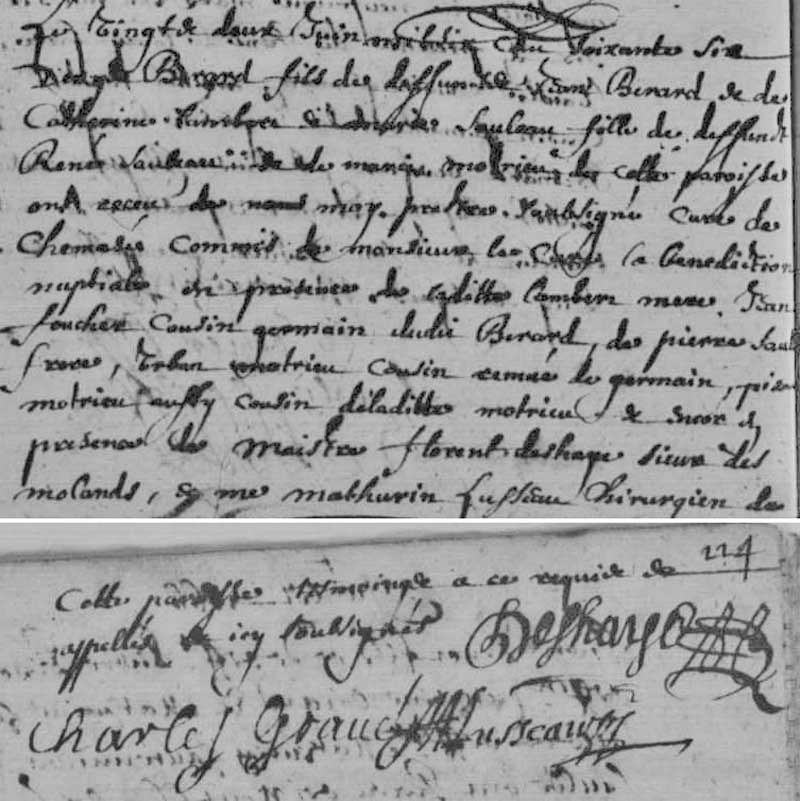 Le vingt & deux Juin mil six Cen soixante six
Berard fils de deffunct Jean Berard & de
Catherine & Marie Sauleau fille de deffunct
René Sauleau & de marie motrieu de cette paroisse
ont receu de nous moy prestre soubsigné Curé de
Chemasé Commis de monsieur le Curé la benediction
nuptiale en presence de laditte lambert mere, Jean
foucher Cousin germain dudit Berard, de pierre Saul
frere, Urban motrieu Cousin remué de germain, pier
motrieu aussy Cousin de laditte motrieu & encor en
presence de Maistre florent deshaye sieur des
molands, & me mathurin Lusseau Chirurgien de
224
Cette paroisse tesmoings a ce requis &
appellés & icy soubsignés Deshayes
Charles Lusseau